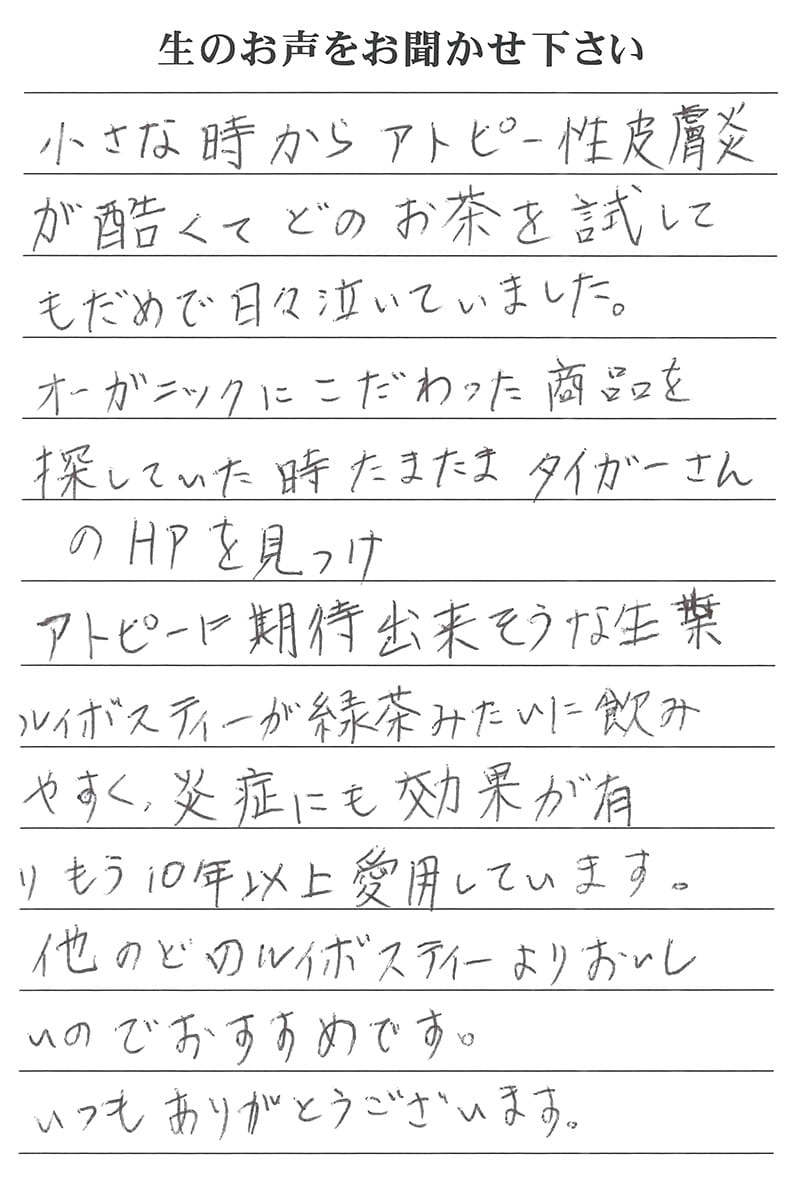 生のお声をお聞かせ下さい
小さな時からアトピー性皮膚炎
が酷くてどのお茶を試して
もだめで日々泣いていました。
オーガニックにこだわった商品を
探していた時たまたまタイガーさん
のHPを見つけ
アトピーに期待出来そうな生葉
ルイボスティーが緑茶みたいに飲み
やすく、炎症にも効果が有
りもう10年以上愛用しています。
他のどのルイボスティーよりおいし
いのでおすすめです。
いつもありがとうございます。